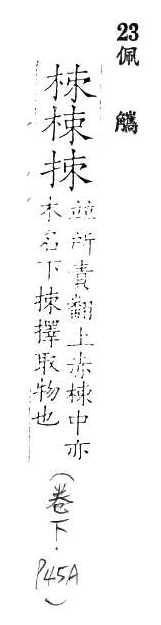 23佩觿
栜梀捒
並所責翻上赤栜中亦
木名下捒擇取物也
(卷下·P45A)